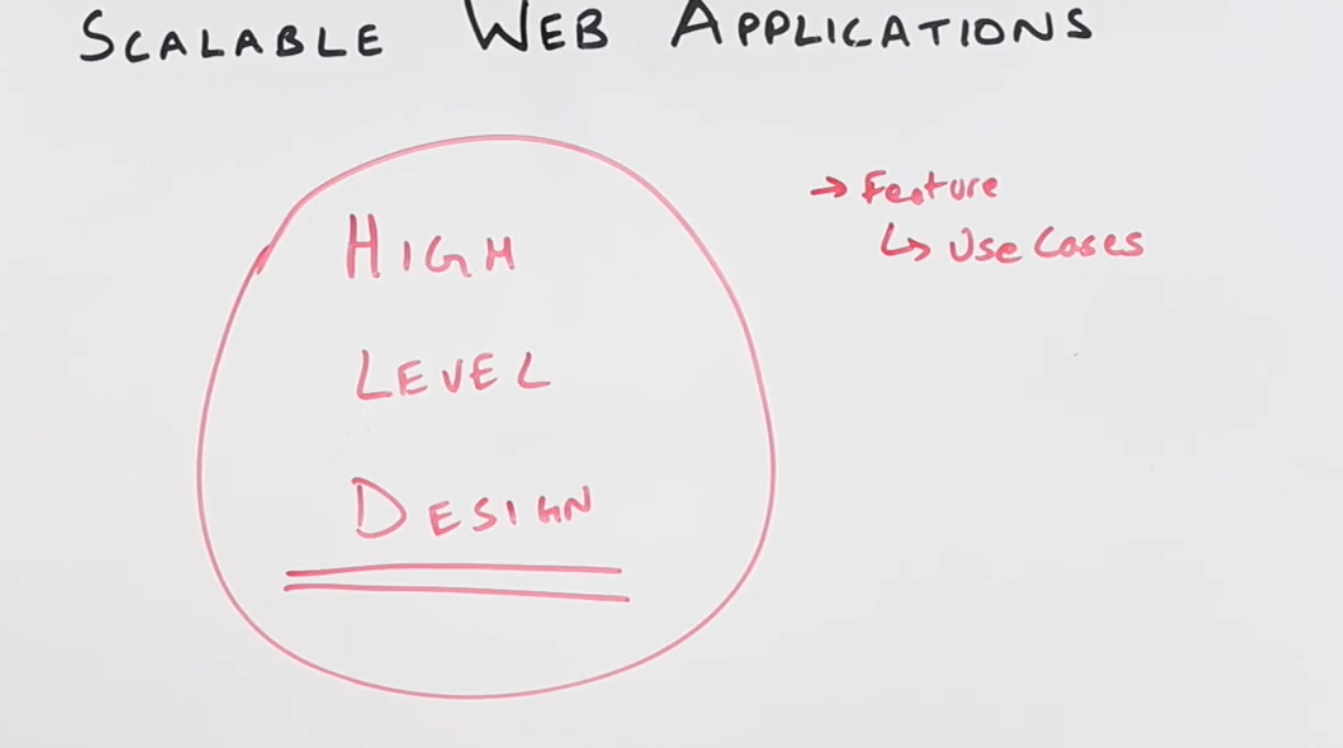 SCALABLE WEB APPLICATIONS
HIGH
LEVEL
DESIGN
→ Feature
↳ Use Cases